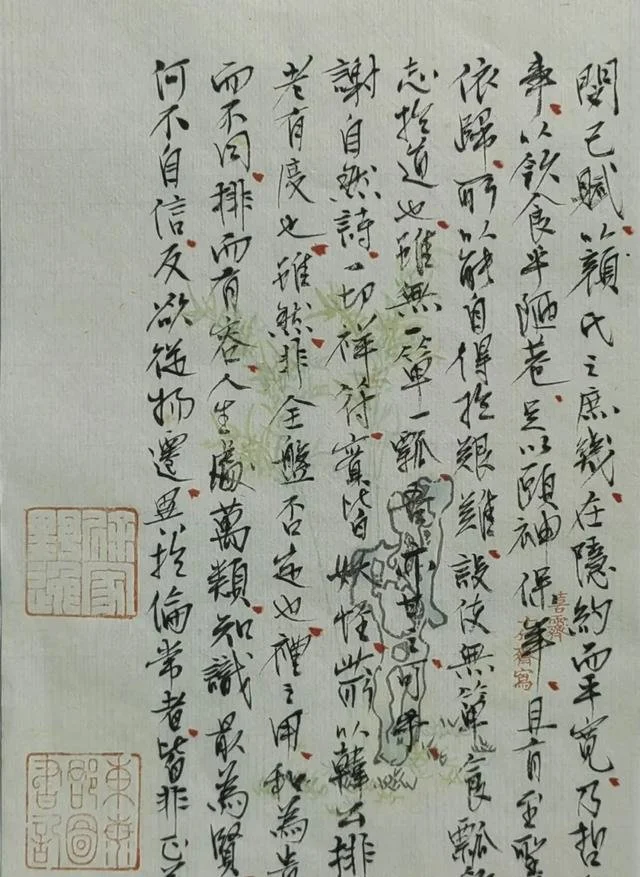 閔己賦以顏氏之庶幾在隱約而平寬乃哲
事以飲食乎陋巷足以頤神保年且有至聖
依歸所以能自得於艱難設使無簞食瓢
志於道也雖無一簞一瓢吾亦甘之可乎
謝自然詩一切祥符實皆妖怪所以韓公排
老有度也雖然非全盤否定也禮之用和為貴
而不同排而有容人生處萬類知識最為賢
何不自信反欲從物遷異於倫常者皆非正